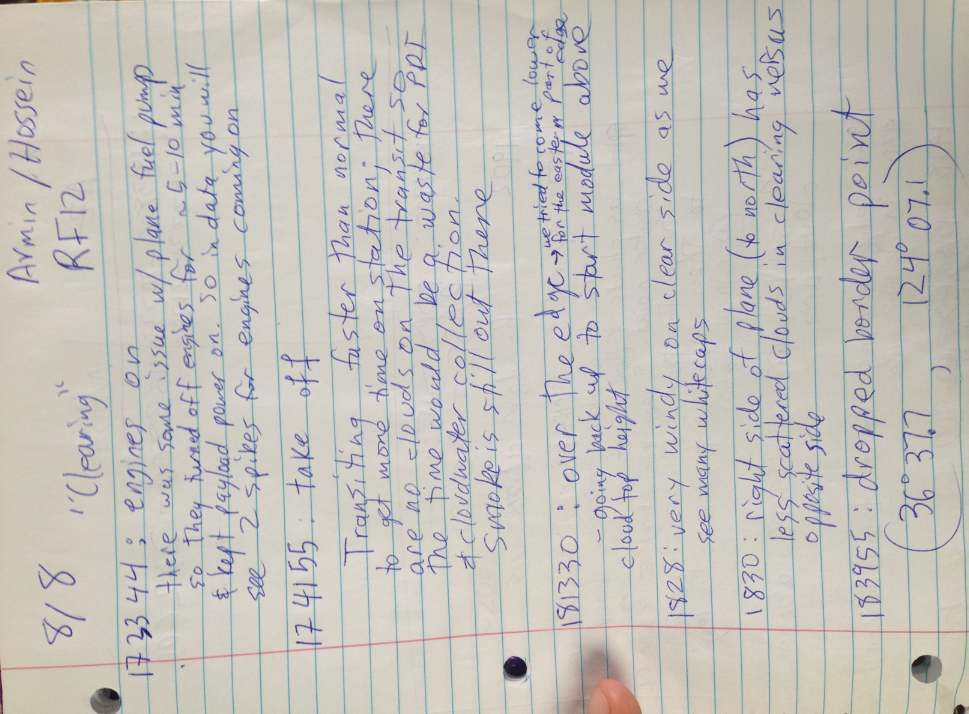 8/8 "Clearing" Armin / Hossein
RF12
173344: engines on
there was some issue w/ plane fuel pump
so they turned off engines for ~5-10 min
& kept payload power on. So in data you will
see 2 spikes for engines coming on
174155: take off
Transiting faster than normal
to get more time on station. There
are no clouds on the transit so
the time would be a waste for PDI
& cloudwater collection.
Smoke is still out there
181330: over the edge → we tried to come lower
for the eastern part of edge
- going back up to start module above
cloud top height
1828: very windy on clear side as we
see many whitecaps
1830: right side of plane (to north) has
less scattered clouds in clearing versus
opposite side
183955: dropped border point
(36° 37.7, 124° 07.1)